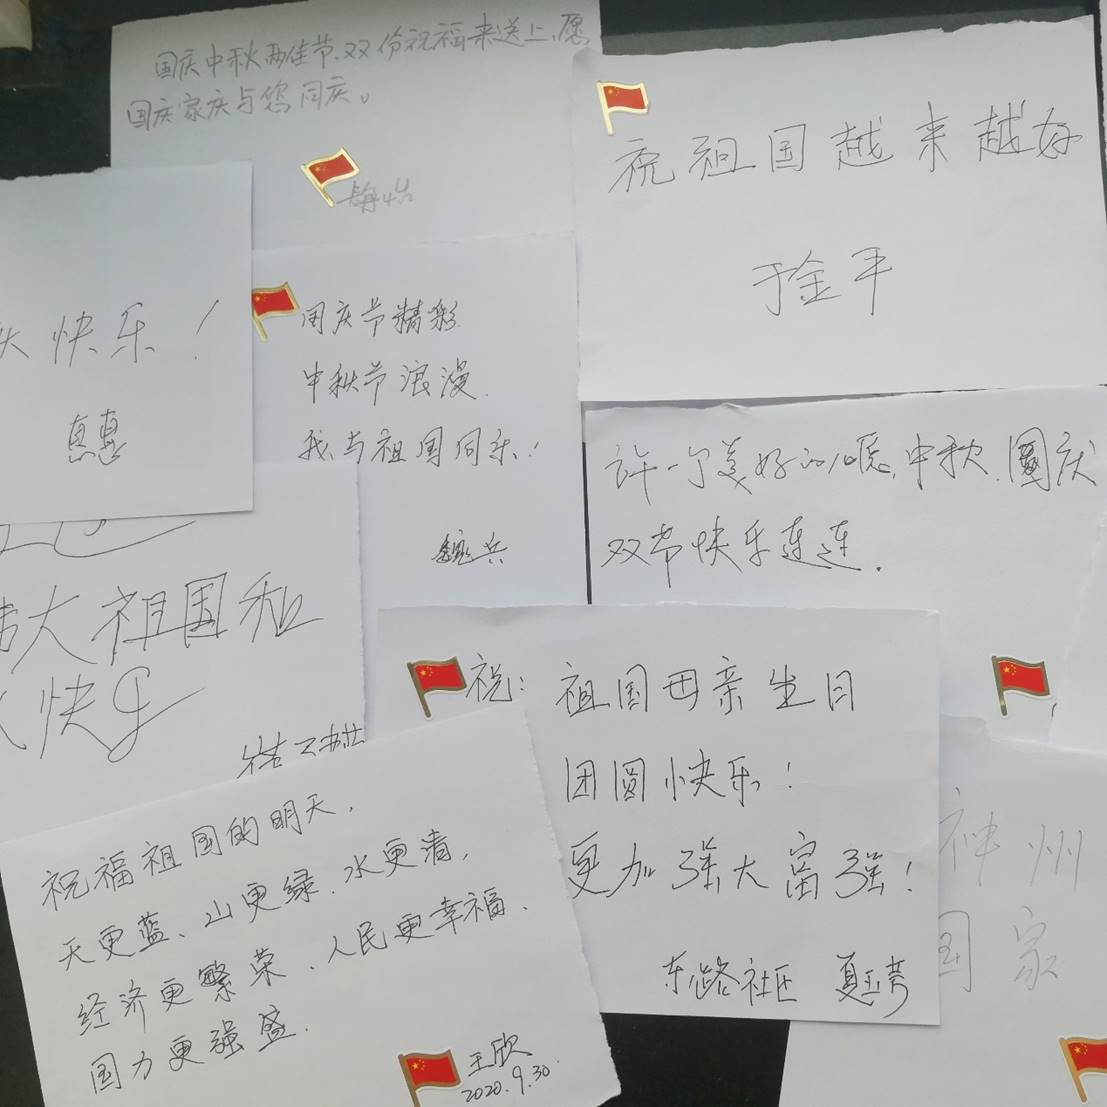 国庆中秋两佳节、双份祝福来送上、愿,
国庆家庆与您同庆。
祝祖国越来越好
于金平
快乐!
国庆节精彩
中秋节浪漫.
我与祖国同乐!
魏兵
许一个美好的心愿,中秋、国庆
双节快乐连连.
大祖国和
快乐
祝:祖国母亲生日
团圆快乐!
更加强大富强!
东路社区
祝福祖国的明天,
天更蓝、山更绿、水更清,
经济更繁荣、人民更幸福、
国力更强盛.
王欣
2020.9.30
神州
国家